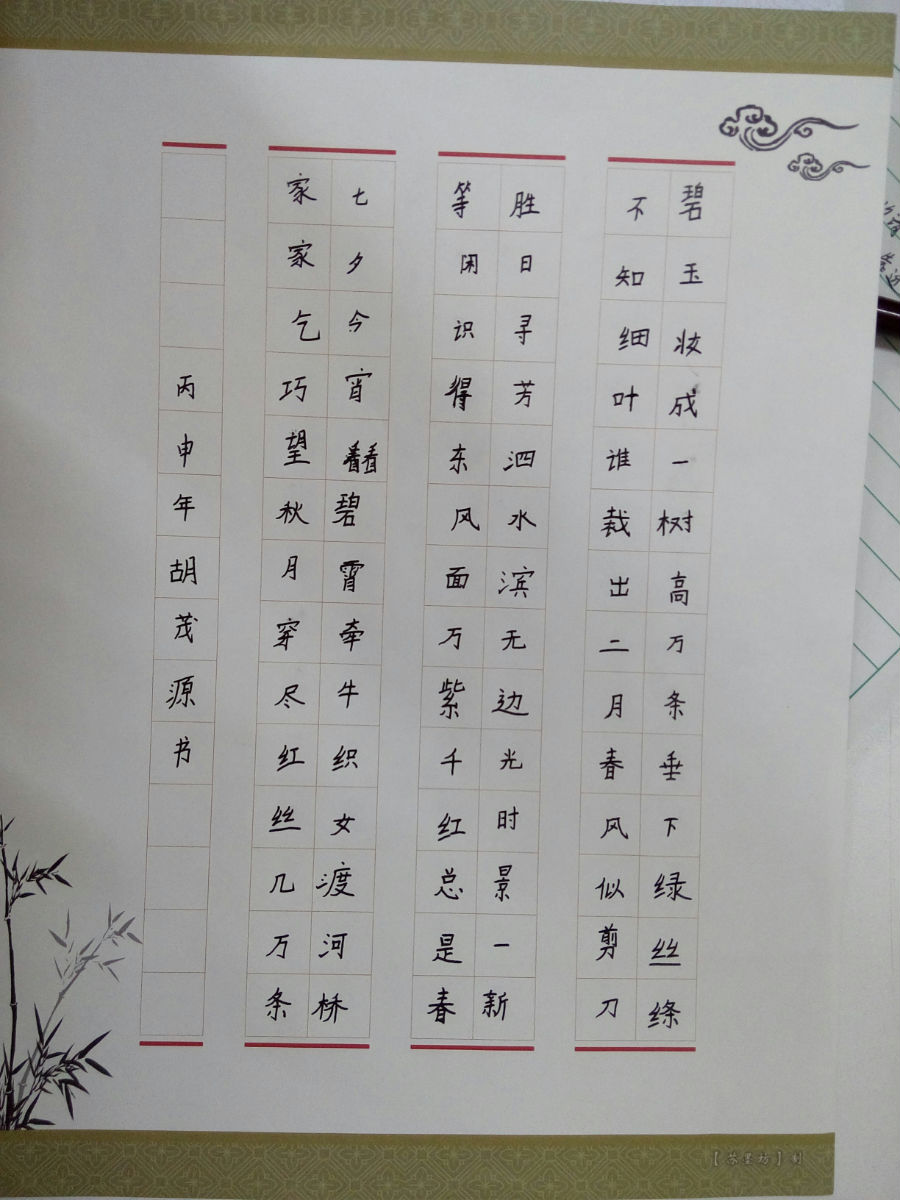 碧玉妆成一树高万条垂下绿丝绦
不知细叶谁裁出二月春风似剪刀
胜日寻芳泗水滨无边光时景一新
等闲识得东风面万紫千红总是春
七夕今宵看看碧霄牵牛织女渡河桥
家家乞巧望秋月穿尽红丝几万条
丙申年胡茂源书
【苏墨坊】制